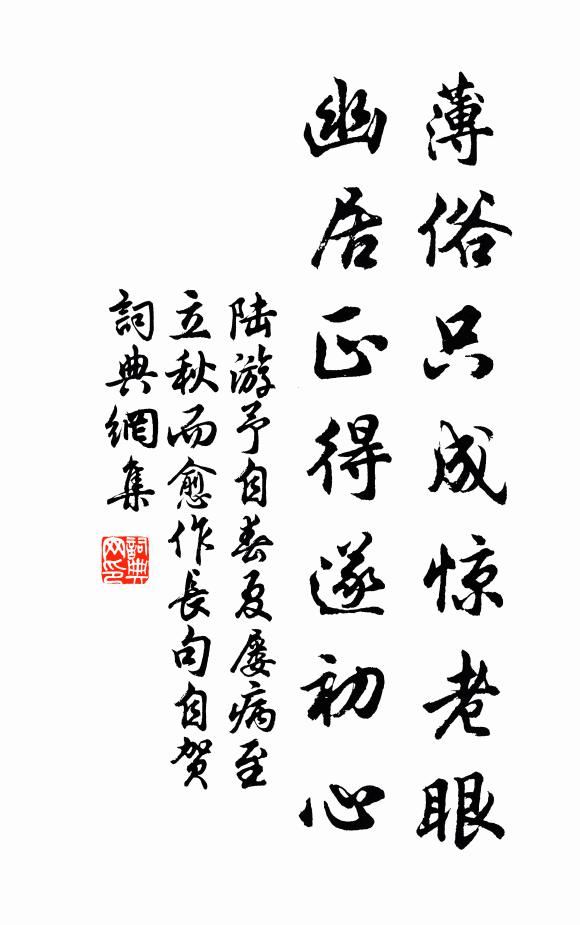 薄俗只成惊老眼
幽居正得遂初心
陆游予自春夏屡病至
立秋而愈作長句自贺
詞典網集
詞典
网印